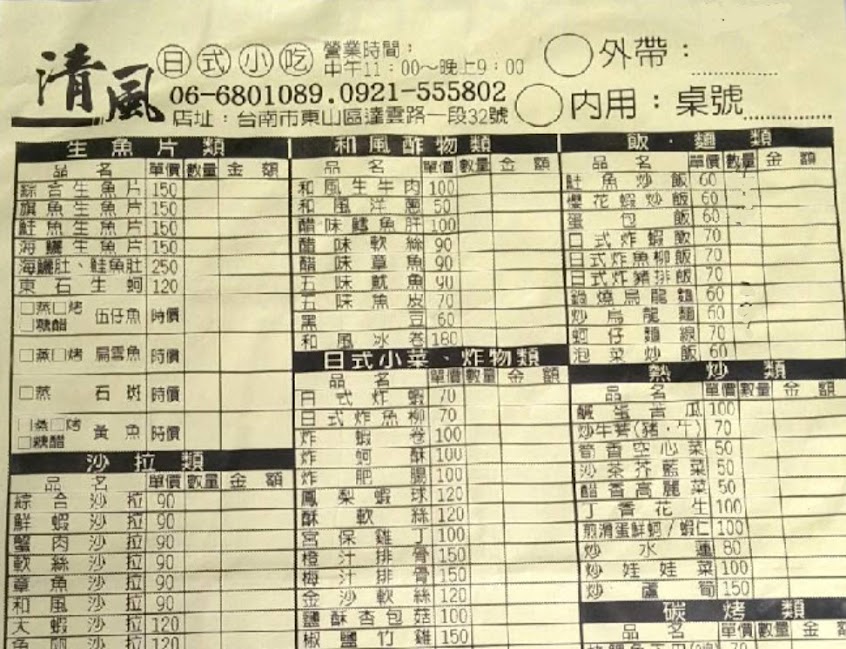 清風
日式小吃
營業時間：
中午11：00～晚上9：00
06-6801089.0921-555802
店址：台南市東山區達雲路一段32號
外帶：
內用：桌號
生魚片類
品名 單價 數量 金額
綜合生魚片 150
旗魚生魚片 150
鮭魚生魚片 150
海鱺生魚片 150
海鱺肚、鮭魚肚 250
東石生蚵 120
□蒸□烤
□糖醋 伍仔魚 時價
□蒸□烤 扁雪魚 時價
□蒸 石斑 時價
□蒸□烤
□糖醋 黃魚 時價
沙拉類
品名 單價 數量 金額
綜合沙拉 90
鮮蝦沙拉 90
蟹肉沙拉 90
軟絲沙拉 90
章魚沙拉 90
和風沙拉 90
大蝦沙拉 120
沙拉 120
和風酢物類
品名 單價 數量 金額
和風生牛肉 100
和風洋蔥 50
醋味鱈魚肝 100
醋味軟絲 90
醋味章魚 90
五味魷魚 90
五味魚皮 70
黑豆 60
和風冰卷 180
日式小菜、炸物類
品名 單價 數量 金額
日式炸蝦 70
日式炸魚柳 70
炸蝦卷 100
炸蚵酥 100
炸肥腸 100
鳳梨蝦球 120
酥軟絲 120
宮保雞丁 100
橙汁排骨 150
梅汁排骨 150
金沙軟絲 120
鹽酥杏包菇 100
椒鹽竹雞 150
飯．麵類
品名 單價 數量 金額
鮭魚炒飯 60
櫻花蝦炒飯 60
蛋包飯 60
日式炸蝦飯 70
日式炸魚柳飯 70
日式炸豬排飯 70
鍋燒烏龍麵 60
炒烏龍麵 60
蚵仔麵線 70
泡菜炒飯 60
熱炒類
品名 單價 數量 金額
鹹蛋苦瓜 100
炒牛蒡(豬．牛) 70
筍香空心菜 50
沙茶芥藍菜 50
醋香高麗菜 50
丁香花生 100
煎滑蛋鮮蚵/蝦仁 100
炒水蓮 80
炒娃娃菜 100
炒蘆筍 150
碳烤類
品名 單價 數量 金額
70